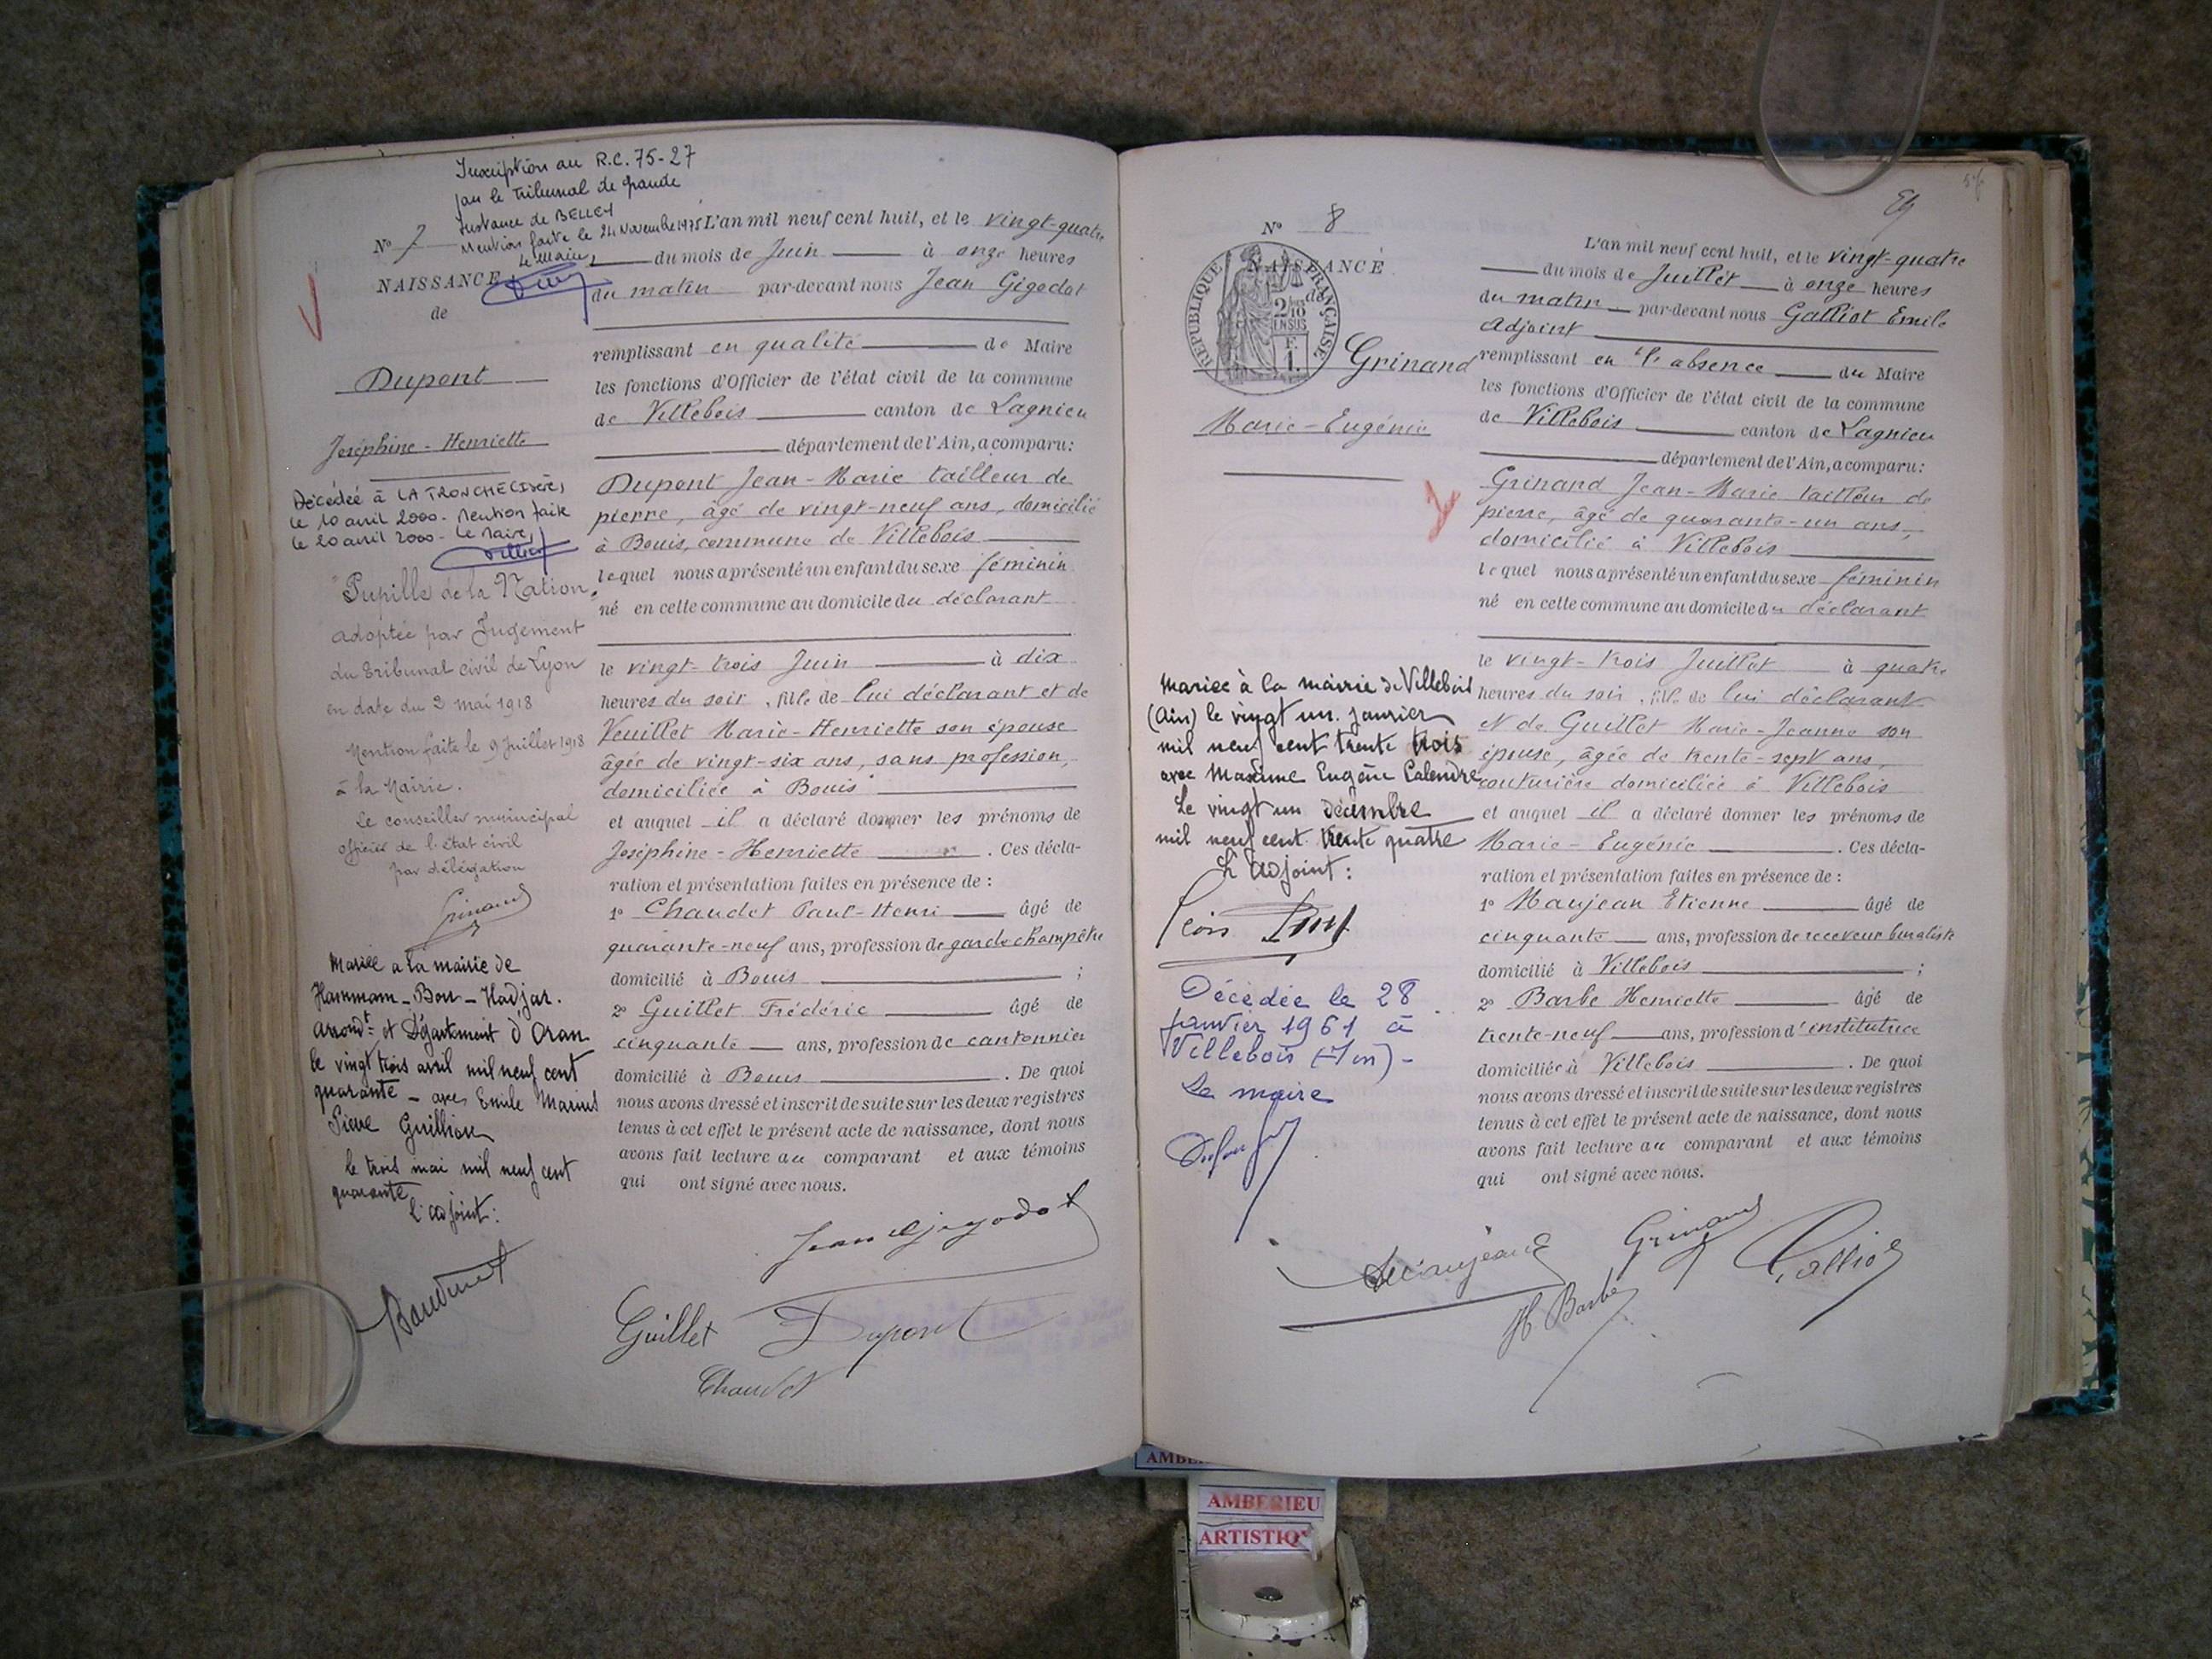 Inscription au R.C. 75-27
par le tribunal de grande
Instance de BELLEY
Mention faite le 24 Novembre 1975
Le Maire,
N° 7
NAISSANCE
de
Dupont
Joséphine-Henriette
Décédée à LA TRONCHE (Isère)
le 10 avril 2000 - Mention faite
le 20 avril 2000 - Le Maire,
Pupille de la Nation
adoptée par Jugement
du Tribunal civil de Lyon
en date du 2 mai 1918
Mention faite le 9 Juillet 1918
à la Mairie.
Le conseiller municipal
officier de l'état civil
par délégation
Grinand
Mariée à la mairie de
Hammam-Bou-Hadjar.
arrondt et Département d'Oran
le vingt trois avril mil neuf cent
quarante - avec Emile Marius
Pierre Guillion
le trois mai mil neuf cent
quarante
l'adjoint:
L'an mil neuf cent huit, et le vingt-quatre
du mois de Juin à onze heures
du matin par-devant nous Jean Gigodot
remplissant en qualité de Maire
les fonctions d'Officier de l'état civil de la commune
de Villebois canton de Lagnieu
département de l'Ain, a comparu:
Dupont Jean-Marie tailleur de
pierre, âgé de vingt-neuf ans, domicilié
à Bouis, commune de Villebois
lequel nous a présenté un enfant du sexe féminin
né en cette commune au domicile du déclarant
le vingt-trois Juin à dix
heures du soir, fille de lui déclarant et de
Veuillet Marie-Henriette son épouse
âgée de vingt-six ans, sans profession,
domiciliée à Bouis
et auquel il a déclaré donner les prénoms de
Joséphine-Henriette. Ces décla-
ration et présentation faites en présence de:
1° Chaudet Paul-Henri âgé de
quarante-neuf ans, profession de garde champêtre
domicilié à Bouis;
2° Guillet Frédéric âgé de
cinquante ans, profession de cantonnier
domicilié à Bouis. De quoi
nous avons dressé et inscrit de suite sur les deux registres
tenus à cet effet le présent acte de naissance, dont nous
avons fait lecture au comparant et aux témoins
qui ont signé avec nous.
Jean Gigodot
Guillet Dupont
Chaudet
N° 8
NAISSANCE
de
RÉPUBLIQUE FRANÇAISE
2/10
EN SUS
F.
1.
Grinand
Marie-Eugénie
Mariée à la mairie de Villebois
(Ain) le vingt un janvier
mil neuf cent trente trois
avec Maxime Eugène Calendre
Le vingt un décembre
mil neuf cent trente quatre
L'adjoint:
Décédée le 28
janvier 1961 à
Villebois (Ain) -
Le maire
L'an mil neuf cent huit, et le vingt-quatre
du mois de Juillet à onze heures
du matin par-devant nous Galliot Emile
Adjoint
remplissant en l'absence du Maire
les fonctions d'Officier de l'état civil de la commune
de Villebois canton de Lagnieu
département de l'Ain, a comparu:
Grinand Jean-Marie tailleur de
pierre, âgé de quarante-un ans,
domicilié à Villebois
lequel nous a présenté un enfant du sexe féminin
né en cette commune au domicile du déclarant
le vingt-trois Juillet à quatre
heures du soir, fille de lui déclarant
et de Guillet Marie-Jeanne son
épouse, âgée de trente-sept ans,
couturière domiciliée à Villebois
et auquel il a déclaré donner les prénoms de
Marie-Eugénie. Ces décla-
ration et présentation faites en présence de:
1° Maujean Etienne âgé de
cinquante ans, profession de receveur buraliste
domicilié à Villebois;
2° Barbe Henriette âgé de
trente-neuf ans, profession d'institutrice
domiciliée à Villebois. De quoi
nous avons dressé et inscrit de suite sur les deux registres
tenus à cet effet le présent acte de naissance, dont nous
avons fait lecture au comparant et aux témoins
qui ont signé avec nous.
Maujean Grinand Galliot
H Barbe
AMBERIEU
ARTISTIQ